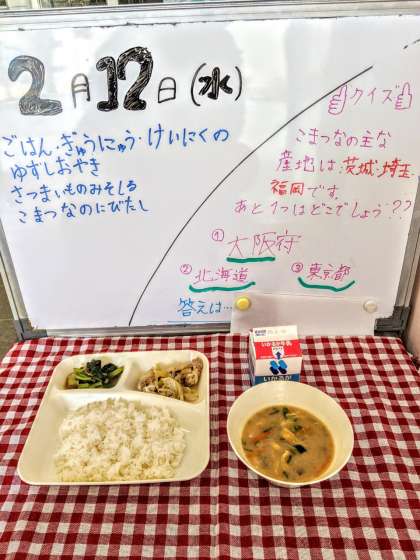 2月12日(水)
ごはん・ぎゅうにゅう・けいにくの
ゆずしおやき
さつまいものみそしる
こまつなのにびたし
クイズ
こまつなの主な
産地は茨城、埼玉、
福岡です。
あと1つはどこでしょう??
①大阪府
②北海道
③東京都
答えは…
いかるが牛乳
いかるが